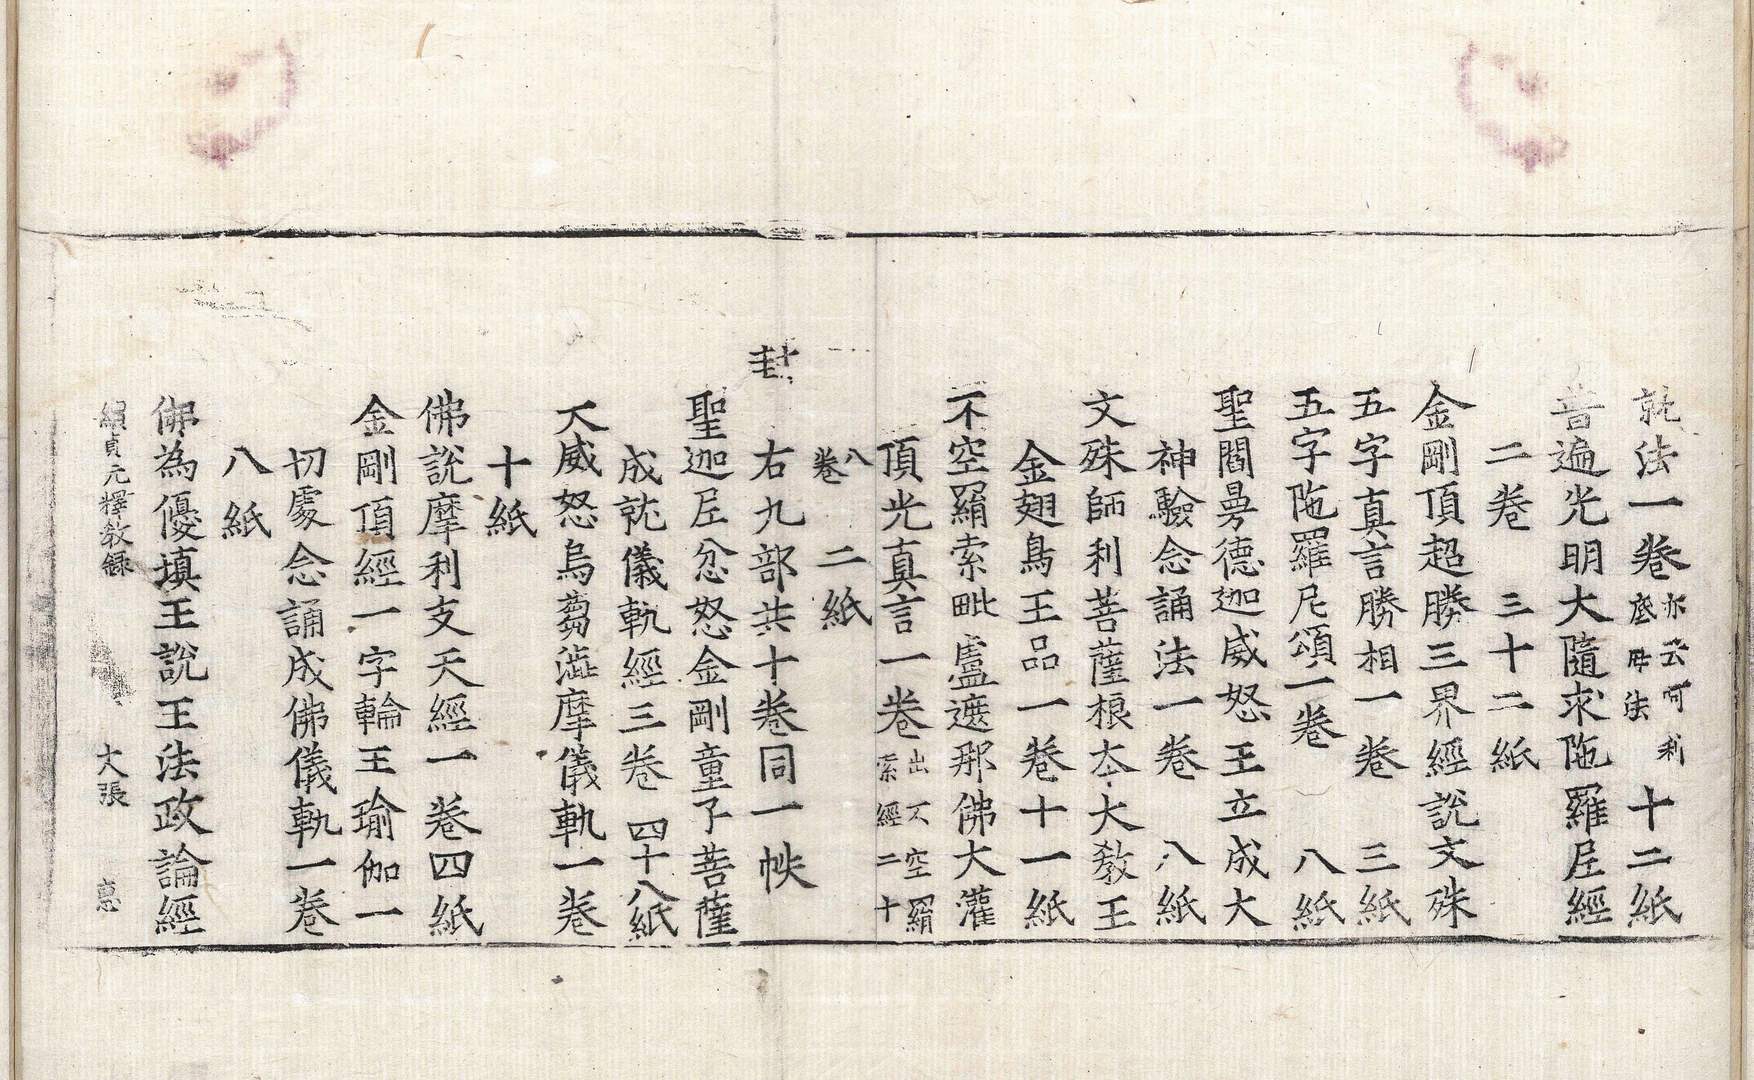 就法一卷 亦云訶利底母法 十二紙
普遍光明大隨求陁羅尼經
二卷 三十二紙
金剛頂超勝三界經說文殊
五字真言勝相一卷 三紙
五字陁羅尼頌一卷 八紙
聖閻曼德迦威怒王立成大
神驗念誦法一卷 八紙
文殊師利菩薩根本大教王
金翅鳥王品一卷 十一紙
不空羂索毗盧遮那佛大灌
頂光真言一卷 出不空羂索經二十
八卷 二紙
右九部共十卷同一帙
聖迦尼忿怒金剛童子菩薩
成就儀軌經三卷 四十八紙
大威怒烏芻澁摩儀軌一卷
十紙
佛說摩利支天經一卷 四紙
金剛頂經一字輪王瑜伽一
切處念誦成佛儀軌一卷
八紙
佛為優填王說王法政論經
續貞元釋教録 大張